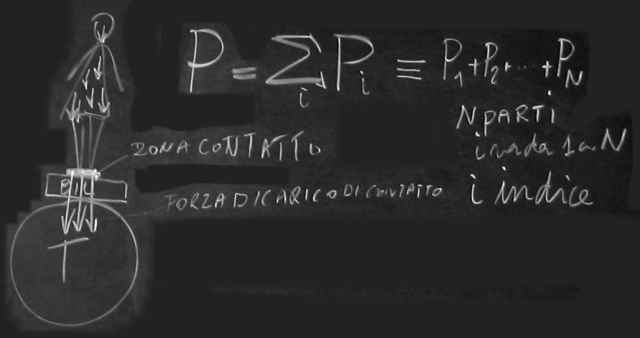 P = Σ_i P_i ≡ P_1 + P_2 + ... + P_N
N PARTI
i vada 1 a N
i indice
ZONA CONTATTO
BIL
FORZA DI CARICO DI CONTATTO
T